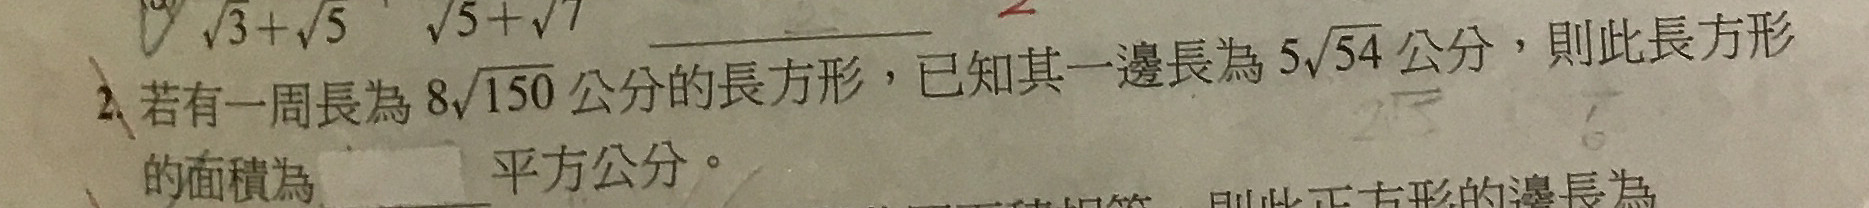 √3+√5 √5+√7
2. 若有一周長為 8√150 公分的長方形，已知其一邊長為 5√54 公分，則此長方形
的面積為 平方公分。
則此正方形的邊長為